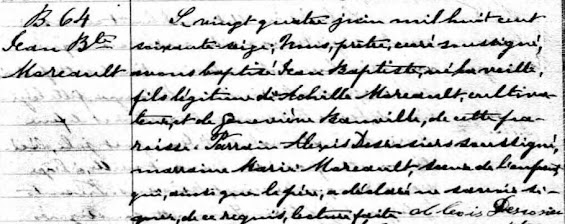 B. 64
Jean Bte
Marcault
Le vingt quatre juin mil huit cent
soixante seize, Nous, prêtre, curé soussigné,
avons baptisé Jean Baptiste, né la veille,
fils légitime d'Achille Marcault, cultiva-
teur, et de Geneviève Banville, de cette pa-
roisse. Parrain Alexis Desrosiers soussigné,
marraine Marie Marcault, soeur de l'enfant
qui, ainsi que le père, a déclaré ne savoir si-
gner, de ce requis, lecture faite Alexis